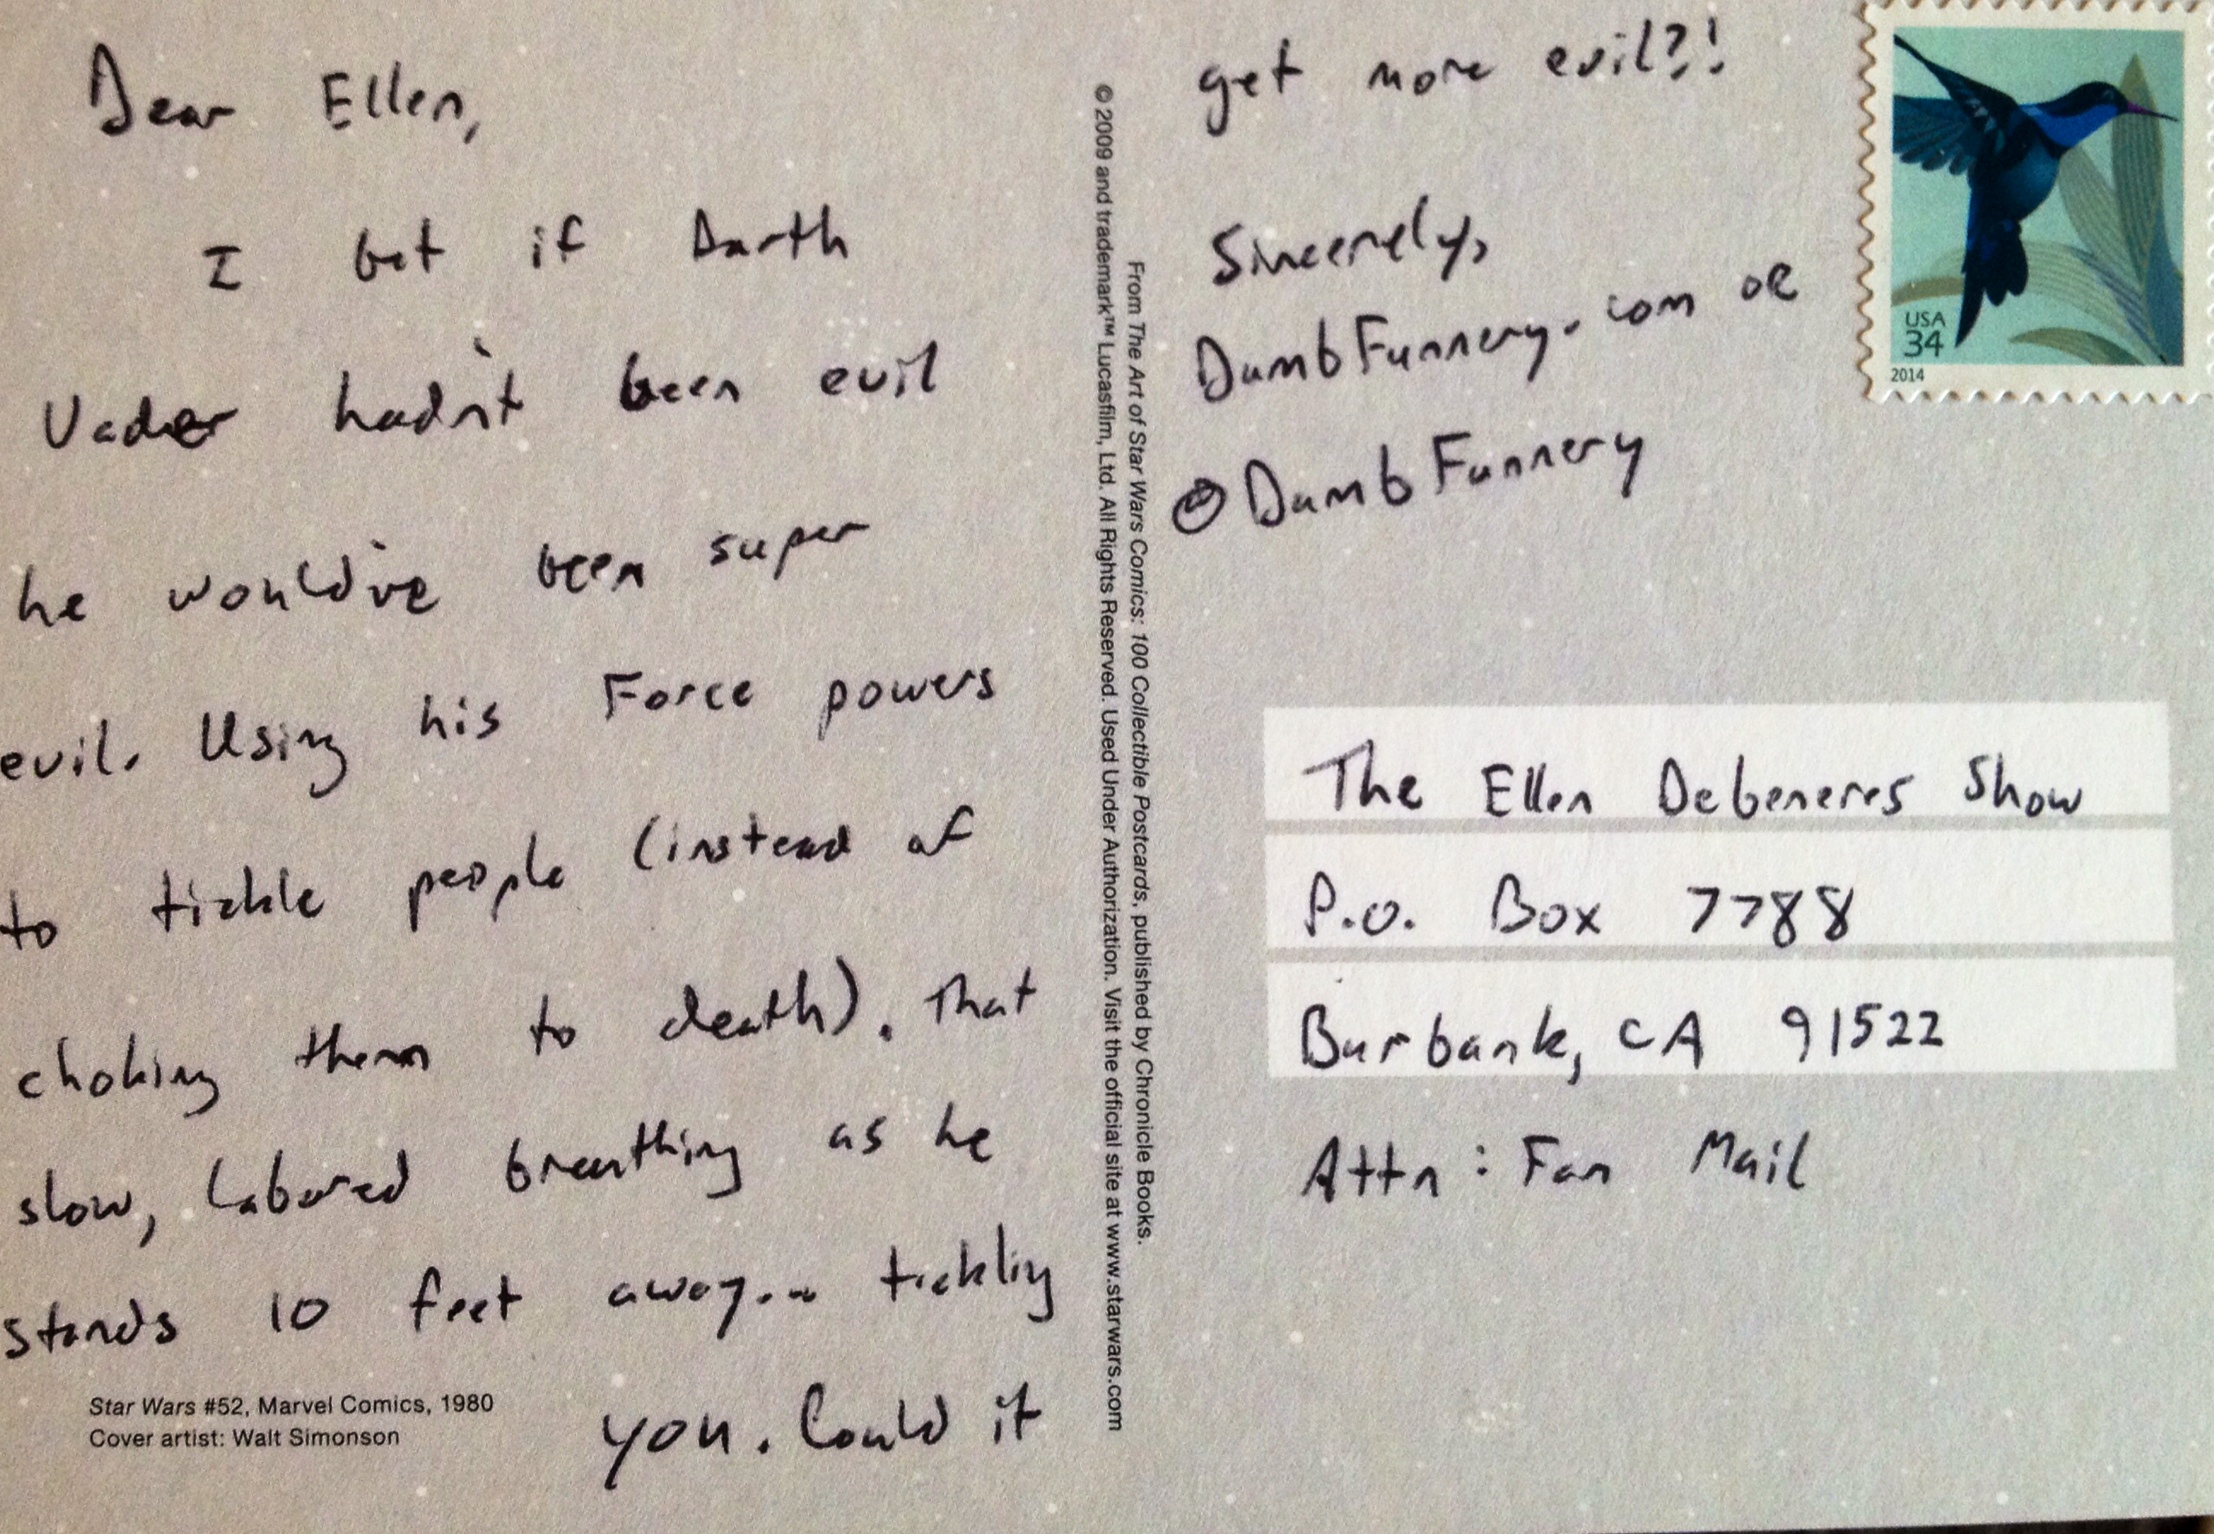 Dear Ellen,
I bet if Darth
Vader hadn't been evil
he would've been super
evil. Using his Force powers
to tickle people (instead of
choking them to death). That
slow, labored breathing as he
stands 10 feet away... tickling
you. Could it
Star Wars #52, Marvel Comics, 1980
Cover artist: Walt Simonson
© 2009 and trademark™ Lucasfilm, Ltd. All Rights Reserved. Used Under Authorization. Visit the official site at www.starwars.com
From The Art of Star Wars Comics: 100 Collectible Postcards, published by Chronicle Books.
get more evil?!
Sincerely,
DumbFunnery.com OR
@DumbFunnery
USA
34
2014
The Ellen Degeneres Show
P.O. Box 7788
Burbank, CA 91522
Attn: Fan Mail